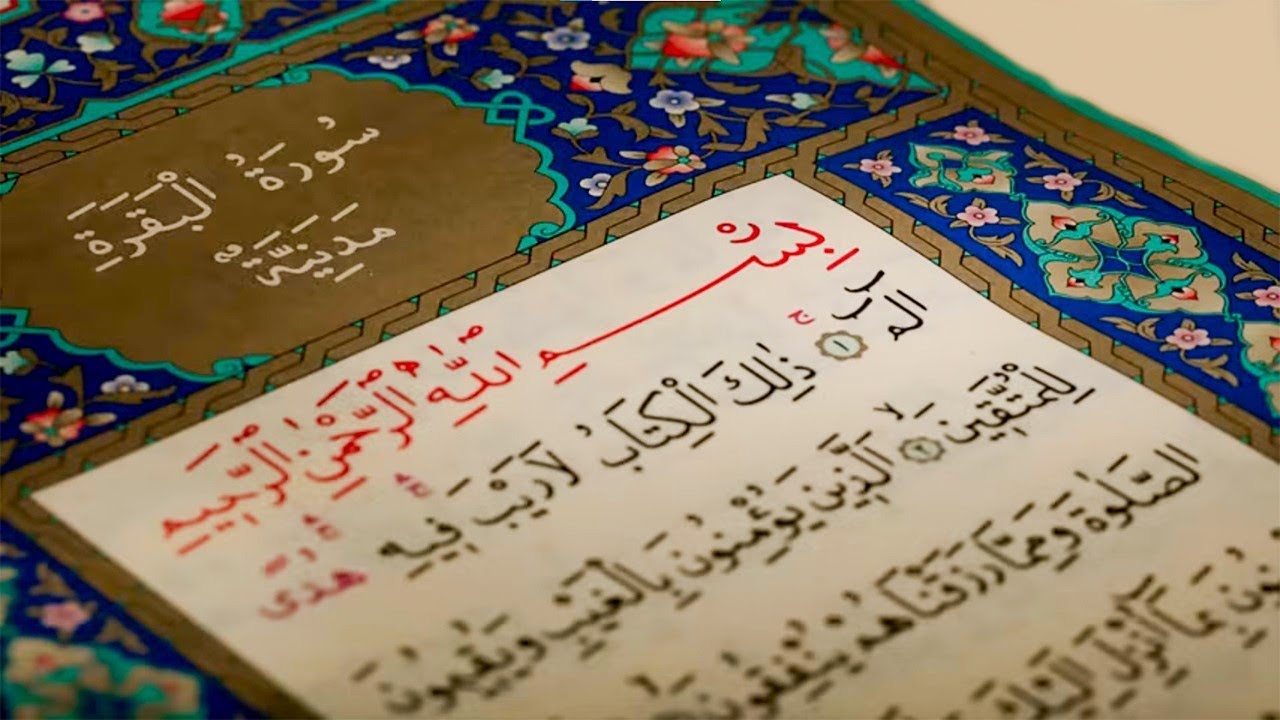 سُورَةُ الْبَقَرَةِ
مَدِينَيَّةٌ
بِسْمِ اللَّهِ الرَّحْمٰنِ الرَّحِيمِ
الم ۝١ ذٰلِكَ الْكِتَابُ لَا رَيْبَ فِيهِ هُدًى
لِلْمُتَّقِينَ ۝٢ الَّذِينَ يُؤْمِنُونَ بِالْغَيْبِ وَيُقِيمُونَ
الصَّلٰوةَ وَمِمَّا رَزَقْنَاهُمْ يُنْفِقُونَ
بِمَا أُنْزِلَ إِلَيْكَ